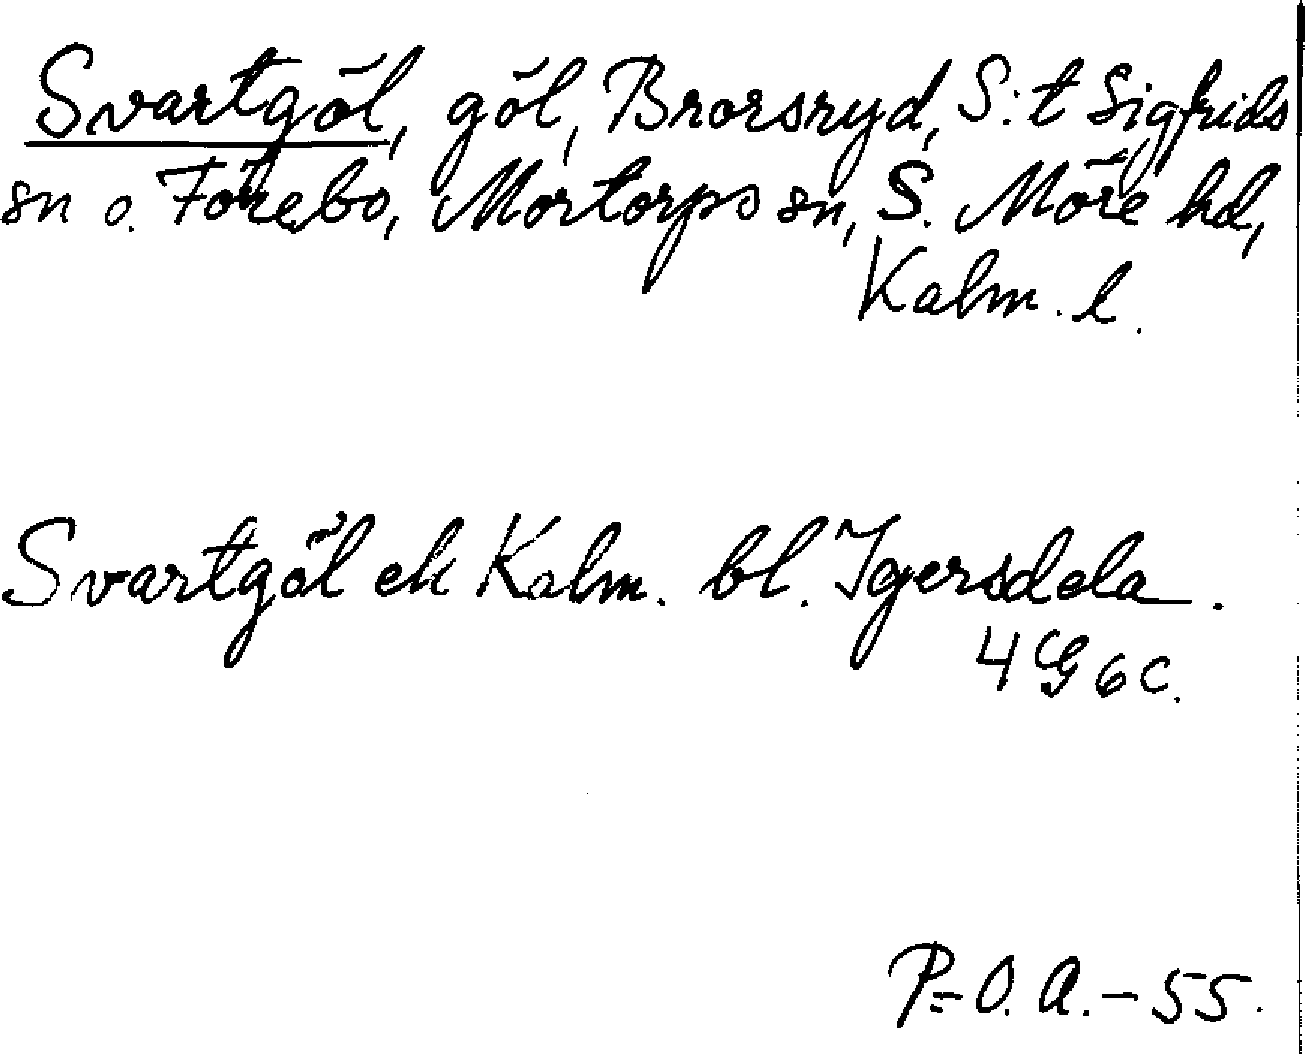 Svartgöl, göl, Brorsryd, S:t Sigfrids
sn o. Förebo, Mortorps sn, S. Möre hd,
Kalm. l.
Svartgöl ek Kalm. bl. Igersdela.
4G6c.
P=O.A.-55.